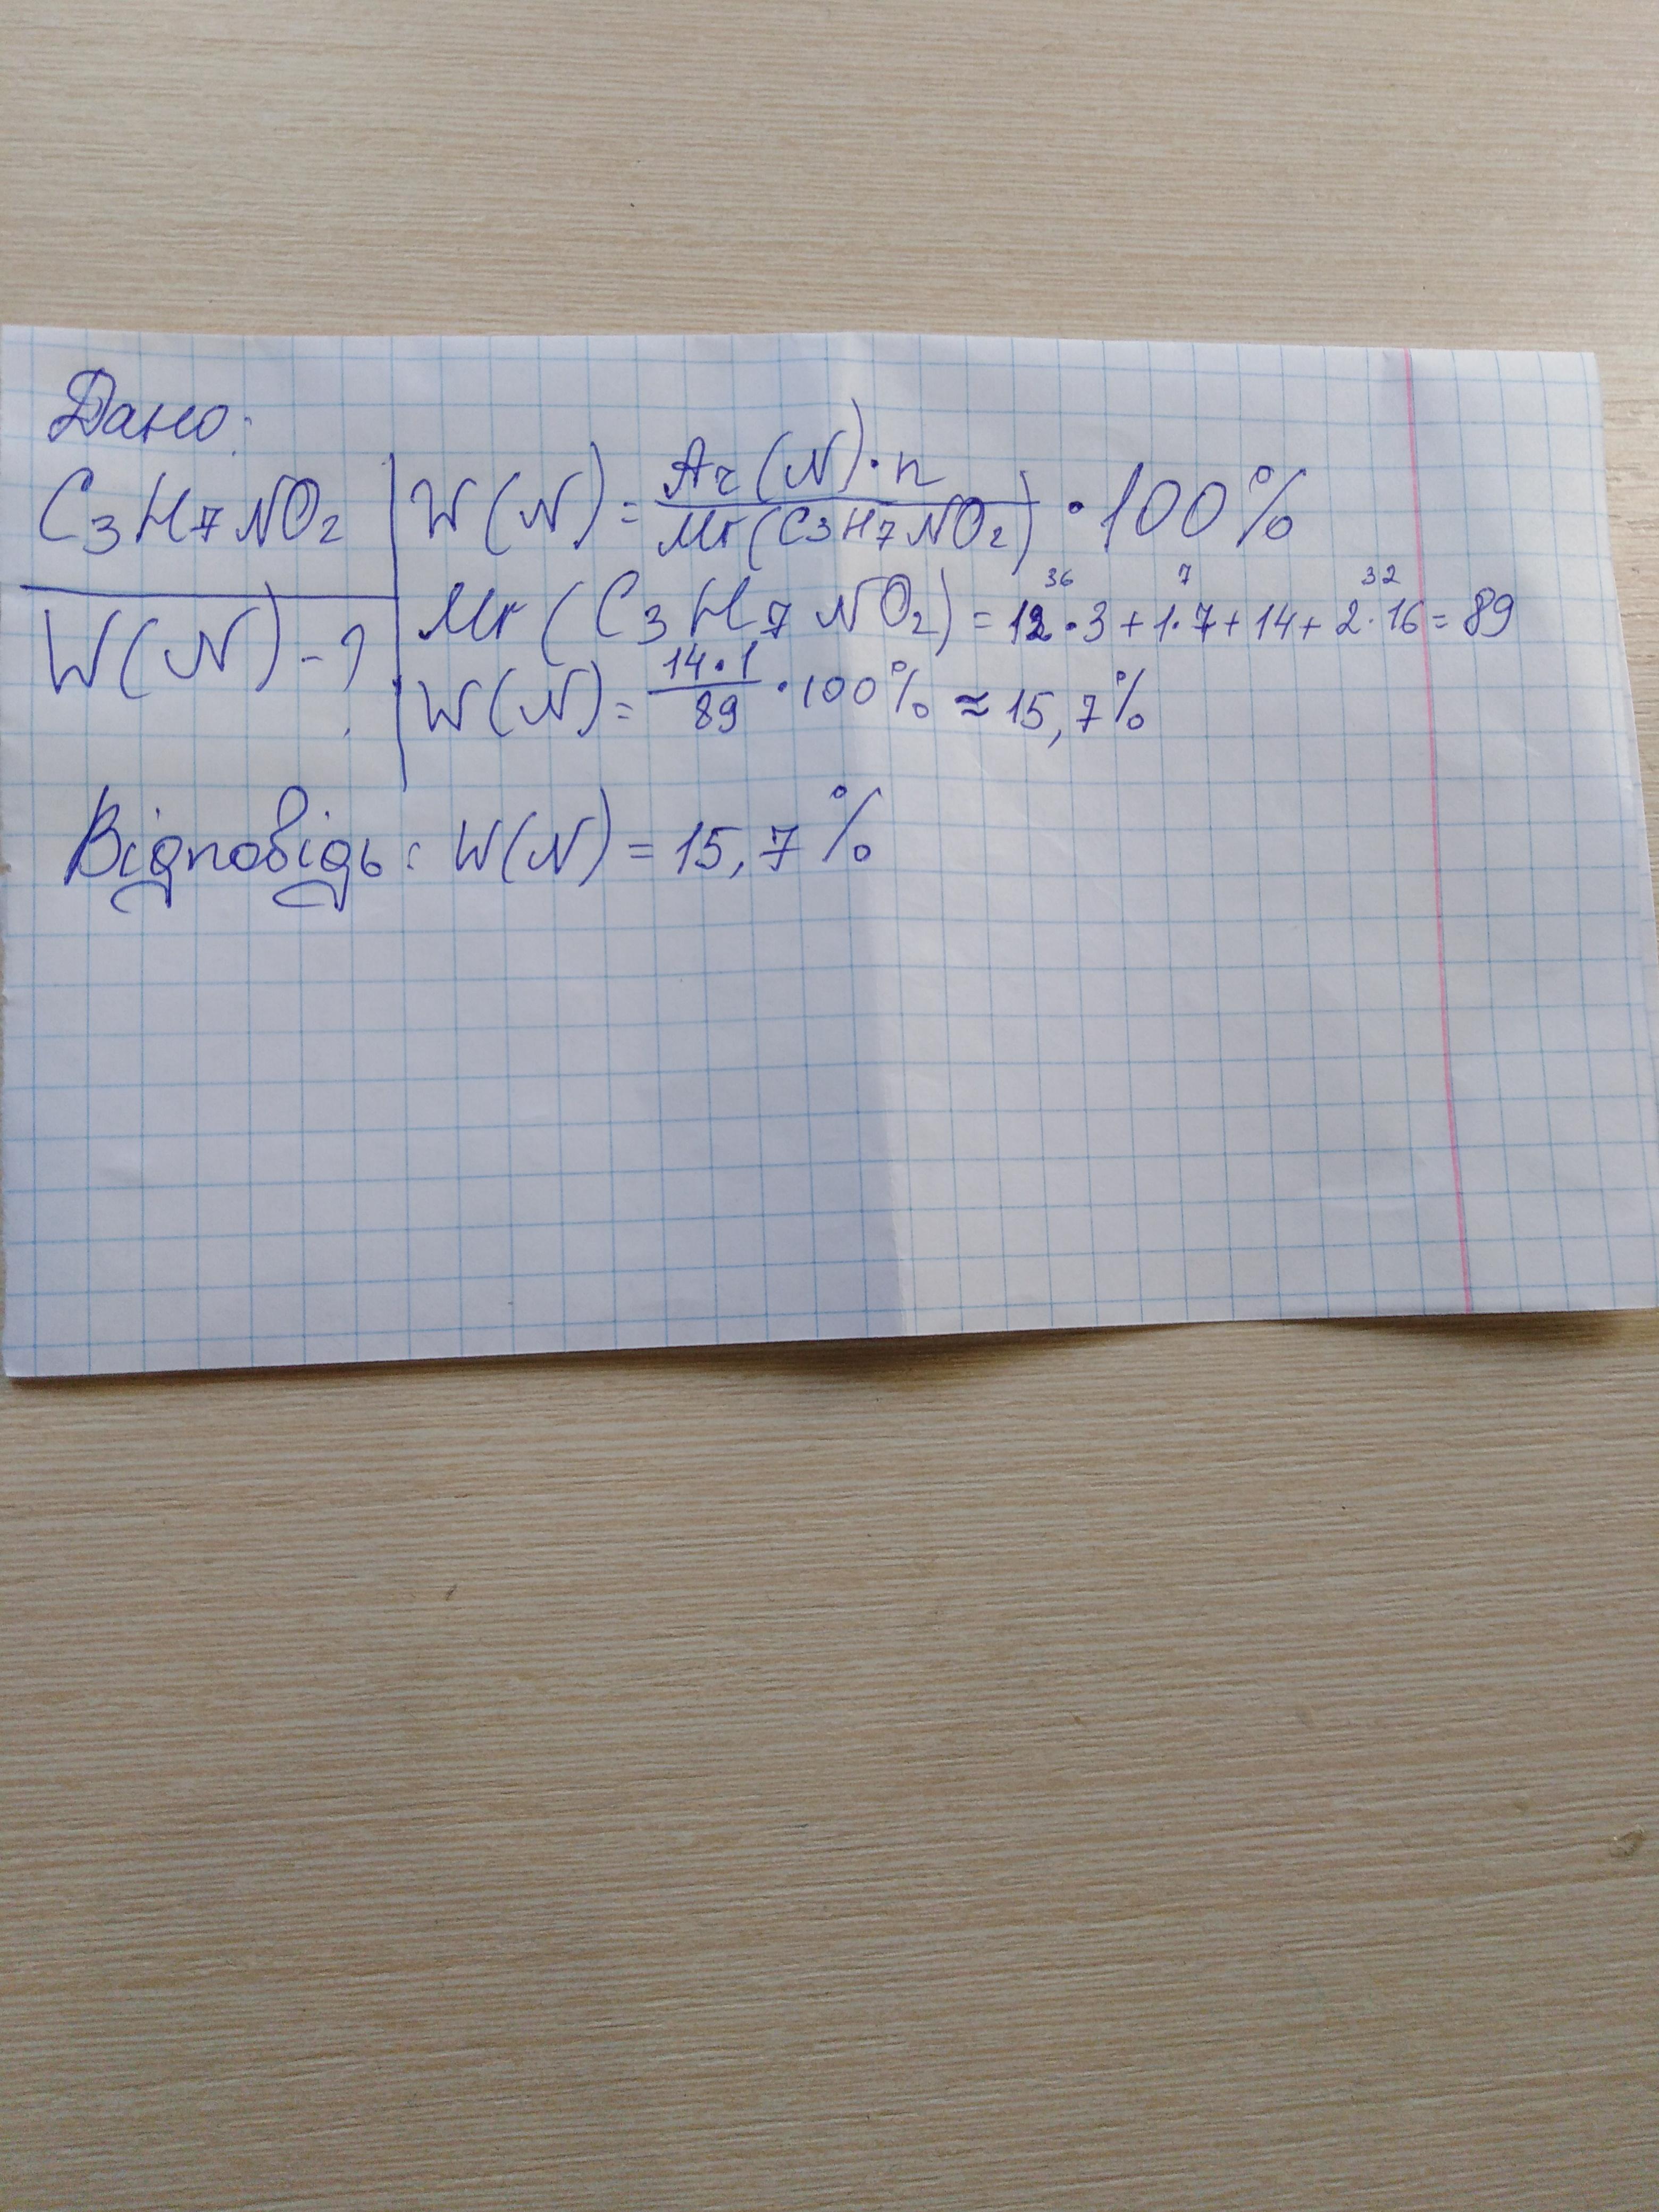 Дано:
C₃H₇NO₂
W(N) - ?
W(N) = Ar(N)·n / Mr(C₃H₇NO₂) · 100%
36 7 32
Mr(C₃H₇NO₂) = 12·3+1·7+14+2·16=89
W(N) = 14·1 / 89 · 100% ≈ 15,7%
Відповідь: W(N) = 15,7%